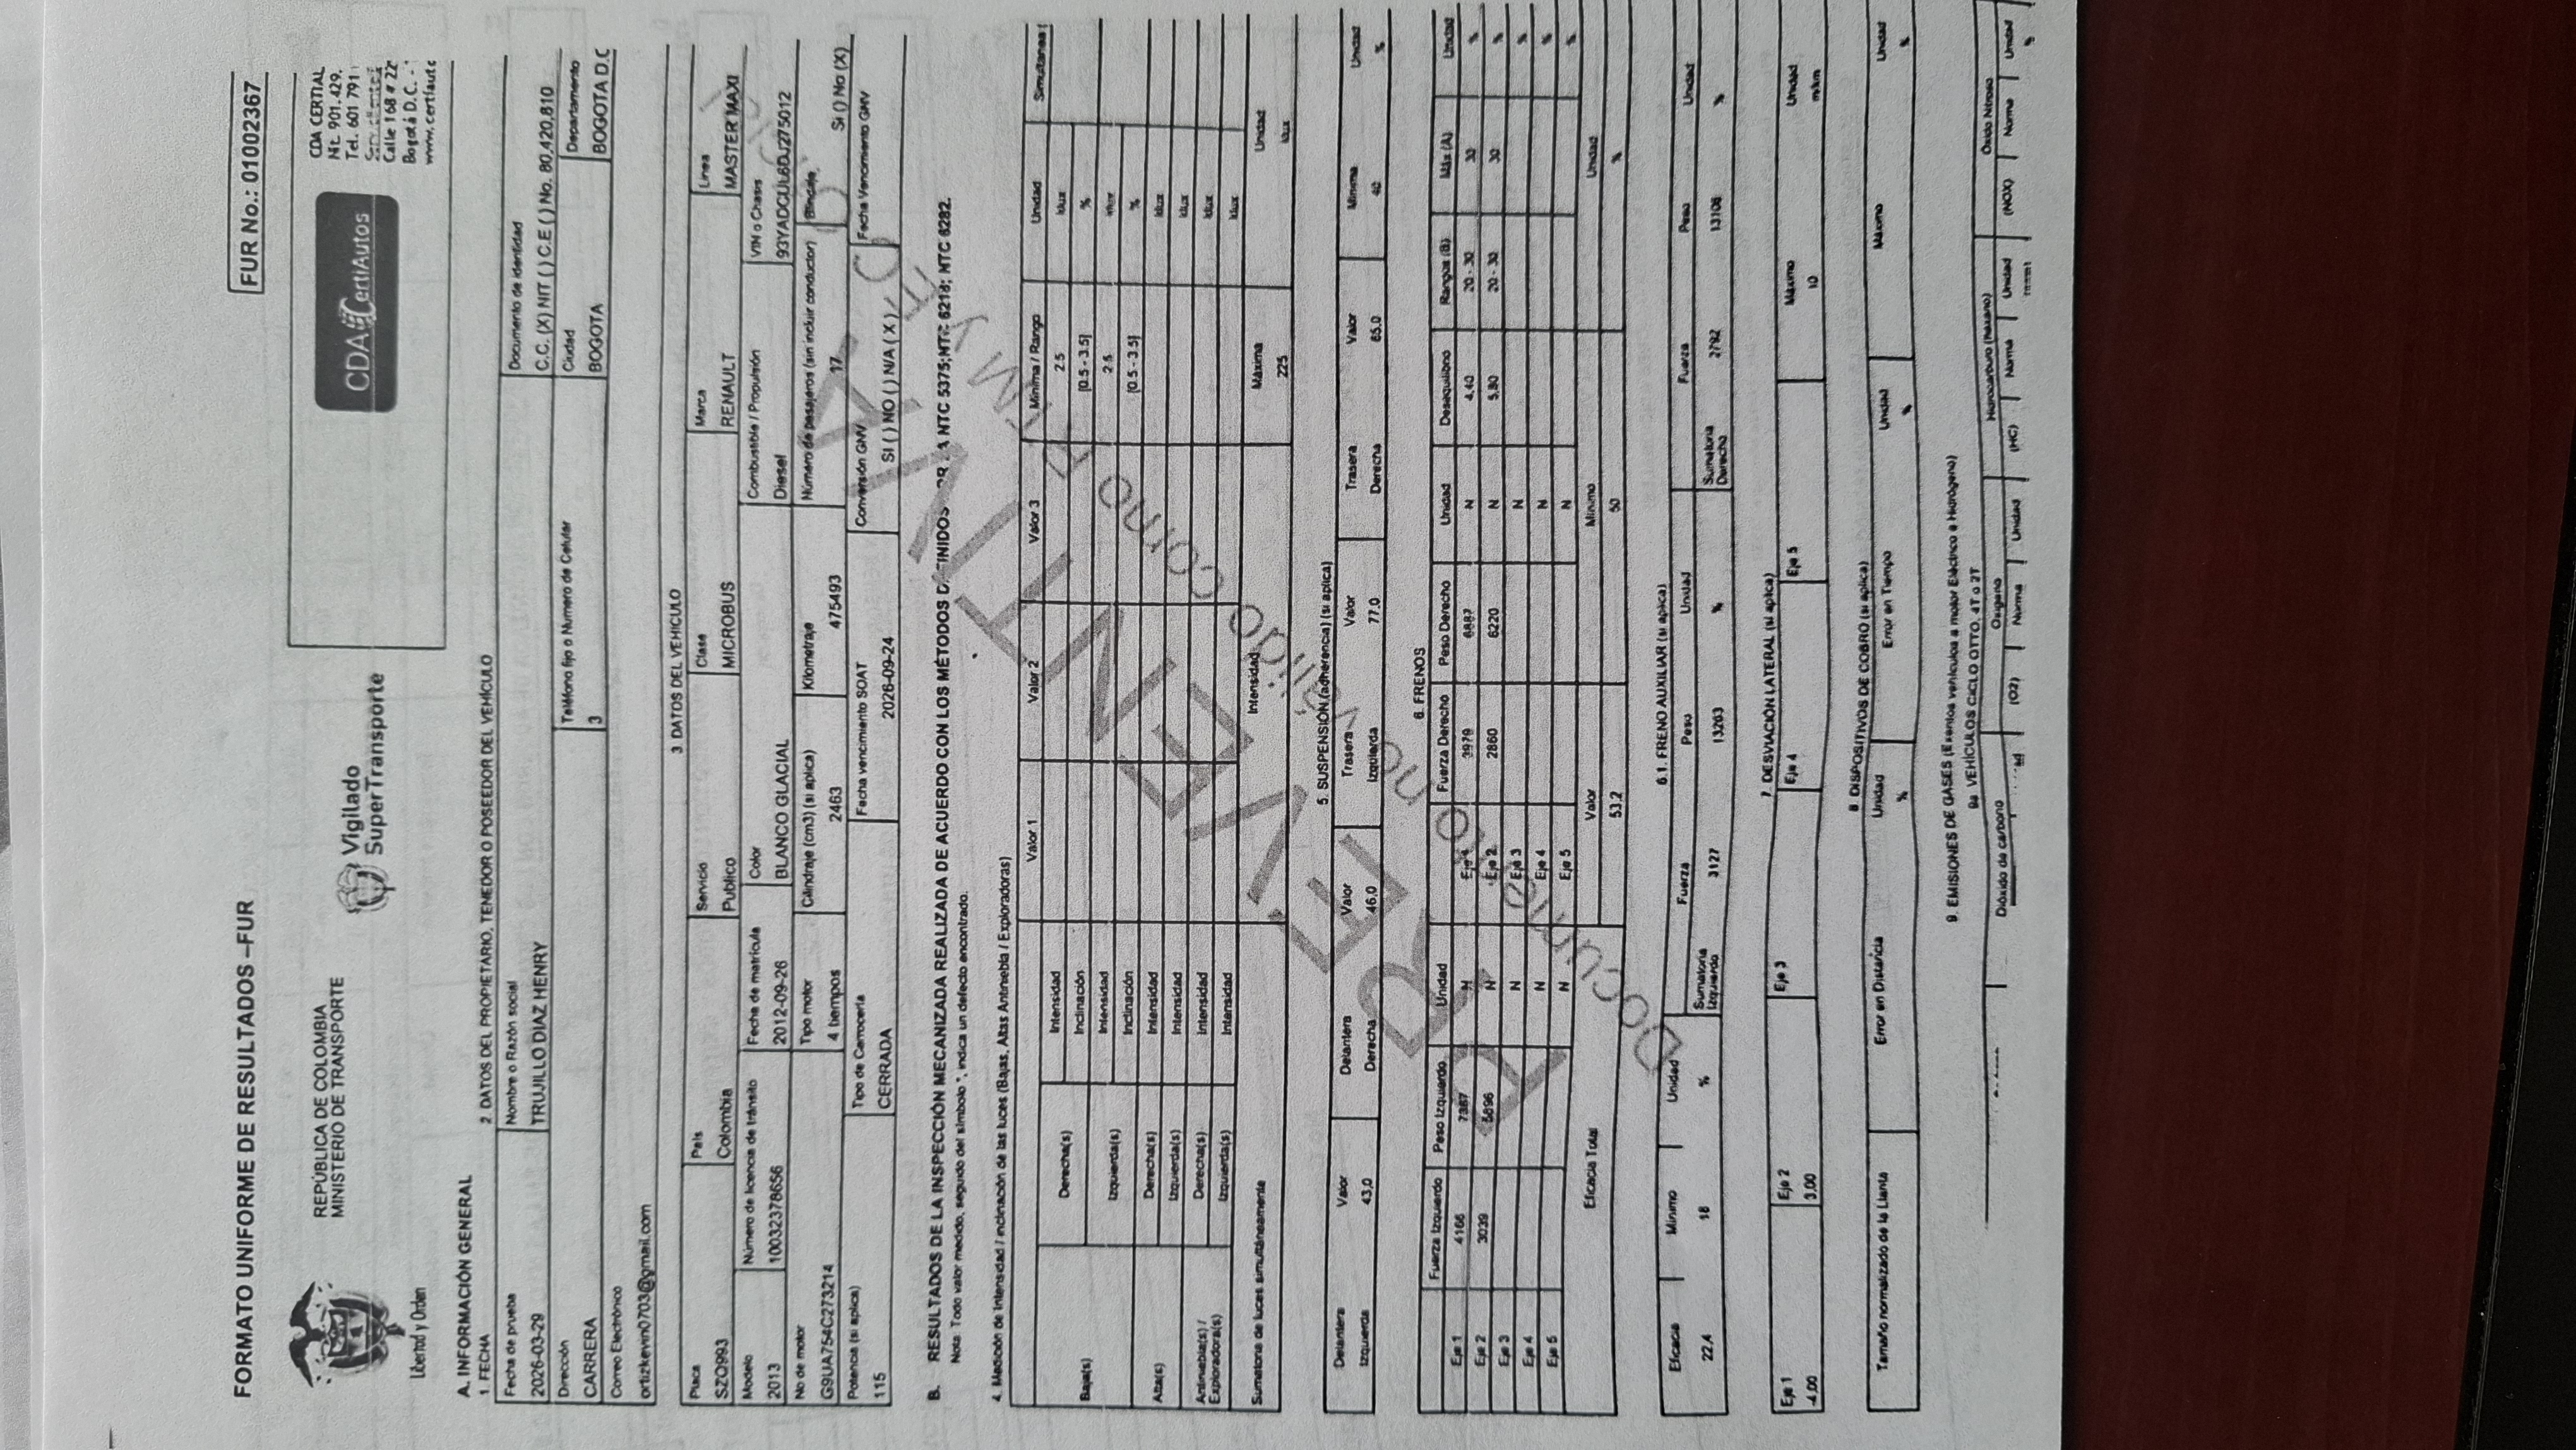 FORMATO UNIFORME DE RESULTADOS –FUR
FUR No.: 01002367
Libertad y Orden
REPÚBLICA DE COLOMBIA
MINISTERIO DE TRANSPORTE
Vigilado
SuperTransporte
CDA CertiAutos
CDA CERTIAL
Nit. 901.429.
Tel. 601 791
Calle 168 # 22
Bogotá D.C. -
www.certiauto
A. INFORMACIÓN GENERAL
1. FECHA
2. DATOS DEL PROPIETARIO, TENEDOR O POSEEDOR DEL VEHÍCULO
Fecha de prueba Nombre o Razón social Documento de identidad
2026-03-29 TRUJILLO DIAZ HENRY C.C. (X) NIT ( ) C.E ( ) No. 80,420,810
Dirección Teléfono fijo o Numero de Celular Ciudad Departamento
CARRERA 3 BOGOTA BOGOTA D.C
Correo Electrónico
ortizkevin0703@gmail.com
3. DATOS DEL VEHICULO
Placa País Servicio Clase Marca Linea
SZQ993 Colombia Publico MICROBUS RENAULT MASTER MAXI
Modelo Número de licencia de tránsito Fecha de matrícula Color Combustible / Propulsión VIN o Chasis
2013 10032378656 2012-09-26 BLANCO GLACIAL Diesel 93YADCUL6DJ275012
No de motor Tipo motor Cilindraje (cm3) (si aplica) Kilometraje Número de pasajeros (sin incluir conductor) Blindaje
G9UA754C273214 4 tiempos 2463 475493 17 SI () No (X)
Potencia (si aplica) Tipo de Carrocería Fecha vencimiento SOAT Conversión GNV Fecha Vencimiento GNV
115 CERRADA 2026-09-24 SI ( ) NO ( ) N/A ( X )
B. RESULTADOS DE LA INSPECCIÓN MECANIZADA REALIZADA DE ACUERDO CON LOS MÉTODOS DEFINIDOS POR LA NTC 5375; NTC 6218; NTC 6282.
Nota: Todo valor medido, seguido del símbolo *, indica un defecto encontrado.
4. Medición de Intensidad / inclinación de las luces (Bajas, Altas Antiniebla / Exploradoras)
Valor 1 Valor 2 Valor 3 Mínima / Rango Unidad Simultanea
Baja(s) Derecha(s) Intensidad 2.5 klux
Inclinación [0.5 - 3.5] %
Izquierda(s) Intensidad 2.5 klux
Inclinación [0.5 - 3.5] %
Alta(s) Derecha(s) Intensidad klux
Izquierda(s) Intensidad klux
Antiniebla(s) / Exploradora(s) Derecha(s) Intensidad klux
Izquierda(s) Intensidad klux
Sumatoria de luces simultáneamente Intensidad Máxima Unidad
225 klux
5. SUSPENSIÓN (adherencia) (si aplica)
Delantera Valor Delantera Valor Trasera Valor Trasera Valor Minima Unidad
Izquierda 43,0 Derecha 46,0 Izquierda 77,0 Derecha 65,0 40 %
6. FRENOS
Fuerza Izquierdo Peso Izquierdo Unidad Fuerza Derecho Peso Derecho Unidad Desequilibrio Rangos (B) Máx (A) Unidad
Eje 1 4166 7367 N Eje 1 3979 6887 N 4,40 20 - 30 30 %
Eje 2 3039 5896 N Eje 2 2860 6220 N 5,80 20 - 30 30 %
Eje 3 N Eje 3 N %
Eje 4 N Eje 4 N %
Eje 5 N Eje 5 N %
Eficacia Total Valor Minimo Unidad
53,2 50 %
6.1. FRENO AUXILIAR (si aplica)
Eficacia Minimo Unidad Sumatoria Izquierdo Fuerza Peso Unidad Sumatoria Derecho Fuerza Peso Unidad
22,4 18 % 3127 13263 % 2792 13106 %
7. DESVIACIÓN LATERAL (si aplica)
Eje 1 Eje 2 Eje 3 Eje 4 Eje 5 Máximo Unidad
-4,00 3,00 10 m/km
8. DISPOSITIVOS DE COBRO (si aplica)
Tamaño normalizado de la Llanta Error en Distancia Unidad Error en Tiempo Unidad Máximo Unidad
% % %
9. EMISIONES DE GASES (Exentos vehículos a motor Eléctrico e Hidrógeno)
9a. VEHÍCULOS CICLO OTTO, 4T o 2T
Dióxido de carbono Oxígeno Hidrocarburo (hexano) Óxido Nitroso
(O2) Norma Unidad (HC) Norma Unidad (NOX) Norma Unidad
%
PREVENTIVA
Documento no válido como RTM y